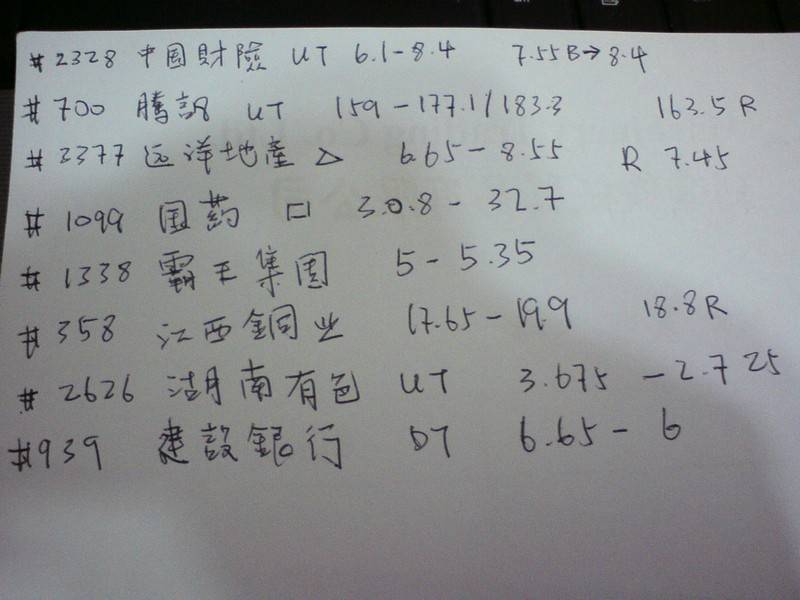 #2328 中国財險 UT 6.1-8.4 7.55B→8.4
#700 騰訊 UT 159-177.1/183.3 163.5 R
#3377 远洋地產 △ 6.65-8.55 R 7.45
#1099 国药 口 30.8-32.7
#1338 霸王集團 5-5.35
#358 江西銅业 17.65-19.9 18.8 R
#2626 湖南有色 UT 3.675-2.725
#939 建設銀行 DT 6.65-6